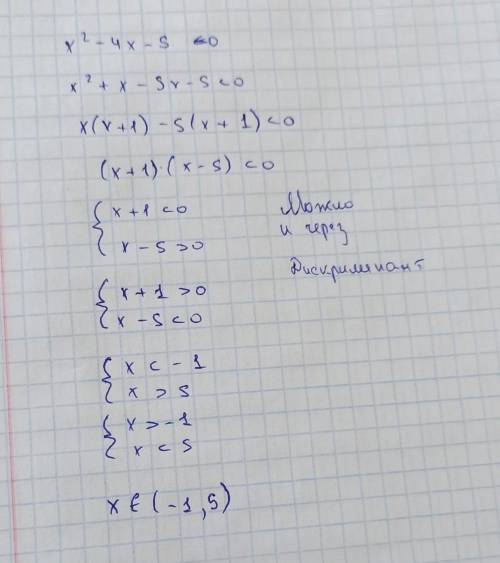 x² - 4x - 5 < 0
x² + x - 5x - 5 < 0
x(x+1) - 5(x+1) < 0
(x+1)·(x-5) < 0
{ x+1 < 0
x-5 > 0
Можно
и через
Дискриминант
{ x+1 > 0
x-5 < 0
{ x < -1
x > 5
{ x > -1
x < 5
x ∈ (-1, 5)